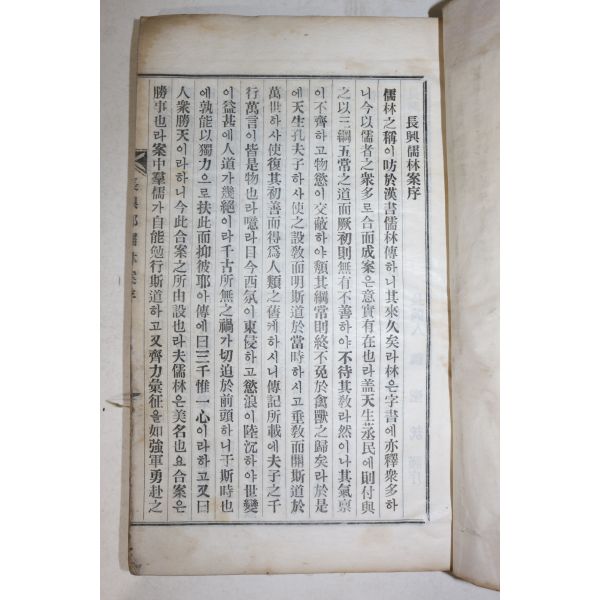 長興儒林案序
儒林之稱이昉於漢書儒林傳하니其來久矣라林은字書에亦釋衆多하
니今以儒者之衆多로合而成案은意實有在也라盖天生烝民에則付與
之以三綱五常之道而厥初則無有不善하야不待其敎라然이나其氣禀
이不齊하고物慾이交蔽하야頹其綱常則終不免於禽獸之歸矣라於是
에天生孔夫子하사使之設敎而明斯道於當時하시고垂敎而開斯道於
萬世하사使復其初善而得爲人類之舊케하시니傳記所載에夫子之千
行萬言이皆是物也라噫라目今西氛이東侵하고慾浪이陸沉하야世變
이益甚에人道가幾絕이라千古所無之禍가切迫於前頭하니于斯時也
에孰能以獨力으로扶此而抑彼耶아傳에曰三千惟一心이라하고又曰
人衆勝天이라하니今此合案之所由設也라夫儒林은美名也요合案은
勝事也라案中羣儒가自能勉行斯道하고又齊力彙征을如強軍勇赴之